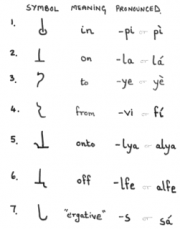 SYMBOL MEANING PRONOUNCED
1. in -pi or pì
2. on -la or lá
3. to -ye or yè
4. from -vi or fí
5. onto -lya or alya
6. off -lfe or alfe
7. "ergative" -s or sá